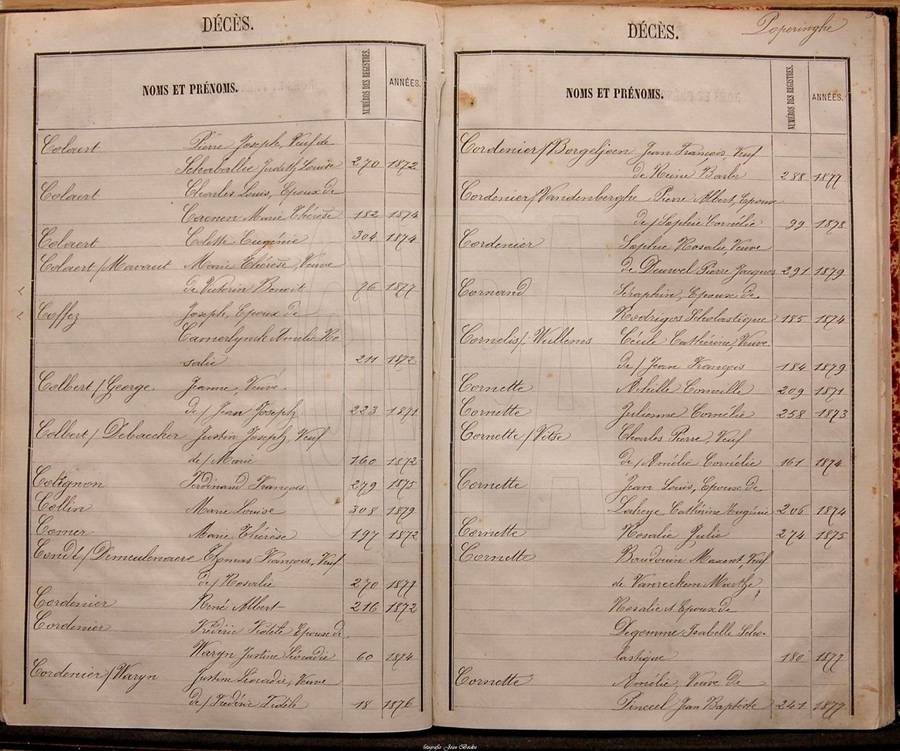 DÉCÈS.
NOMS ET PRÉNOMS. NUMÉROS DES REGISTRES. ANNÉES.
Colaert Pierre Joseph, Veuf de
Schaballie Judith Louise 270 1872
Colaert Charles Louis, Epoux de
Coenen Marie Thérèse 182 1874
Colaert Colette Eugénie 304 1874
Colaert / Mavaut Marie Thérèse, Veuve
de Victorin Benoit 76 1877
Coffez Joseph, Epoux de
Camerlynck Amelie Ro
salie 211 1872
Colbert / George Jeanne, Veuve
de / Jean Joseph 223 1871
Colbert / Debaecker Justin Joseph, Veuf
de / Marie 160 1872
Colignon Ferdinand François 279 1875
Collin Marie Louise 308 1879
Comer Marie Thérèse 197 1872
Condt / Demeulenaere Thomas François, Veuf
de / Rosalie 270 1877
Cordenier René Albert 216 1872
Cordenier Frédéric Fidèle Epoux de
Waryn Justine Léocadie 60 1874
Cordenier / Waryn Justine Léocadie, Veuve
de / Frédéric Fidèle 18 1876
DÉCÈS. Poperinghe
NOMS ET PRÉNOMS. NUMÉROS DES REGISTRES. ANNÉES.
Cordenier / Borgeljoen Jean François, Veuf
de Reine Barbe 288 1877
Cordenier / Vandenberghe Pierre Albert, Epoux
de / Sophie Cornélie 99 1878
Cordenier Sophie Rosalie, Veuve
de Deurwel Pierre Jacques 291 1879
Cornand Séraphin, Epoux de
Rodrigos Scholastique 185 1874
Cornelis / Willems Cécile Catherine, Veuve
de / Jean François 184 1879
Cornette Achille Corneille 209 1871
Cornette Julienne Cornélie 258 1873
Cornette / Vitse Charles Pierre, Veuf
de / Amélie Cornélie 161 1874
Cornette Jean Louis, Epoux de
Laheye Cathérine Eugénie 206 1874
Cornette Rosalie Julie 274 1875
Cornette Baudouin Veuf
de Vanreckem
Rosalie et Epoux de
Degomme Isabelle Scho-
lastique 180 1877
Cornette Amélie, Veuve de
Pinceel Jean Baptiste 241 1879